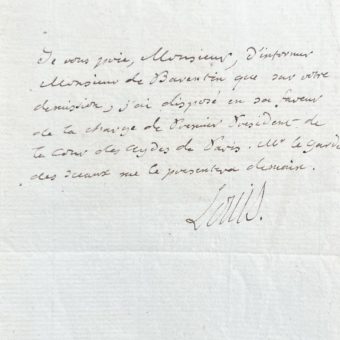 Je vous prie, Monsieur, d'informer
Monsieur de Barentin que sur votre
demission, j'ai disposé en sa faveur
de la charge de Premier President de
la Cour des Aydes de Paris. Mr. le Garde
des sceaux me le presentera demain.
Louis.